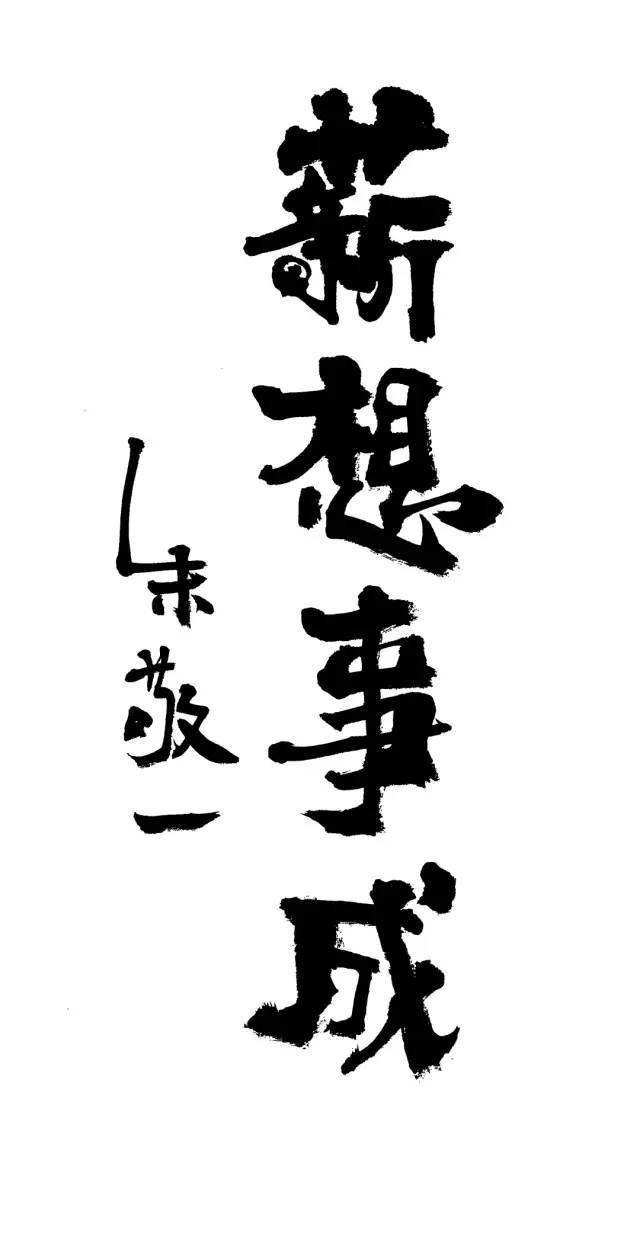 薪想事成
朱敬一